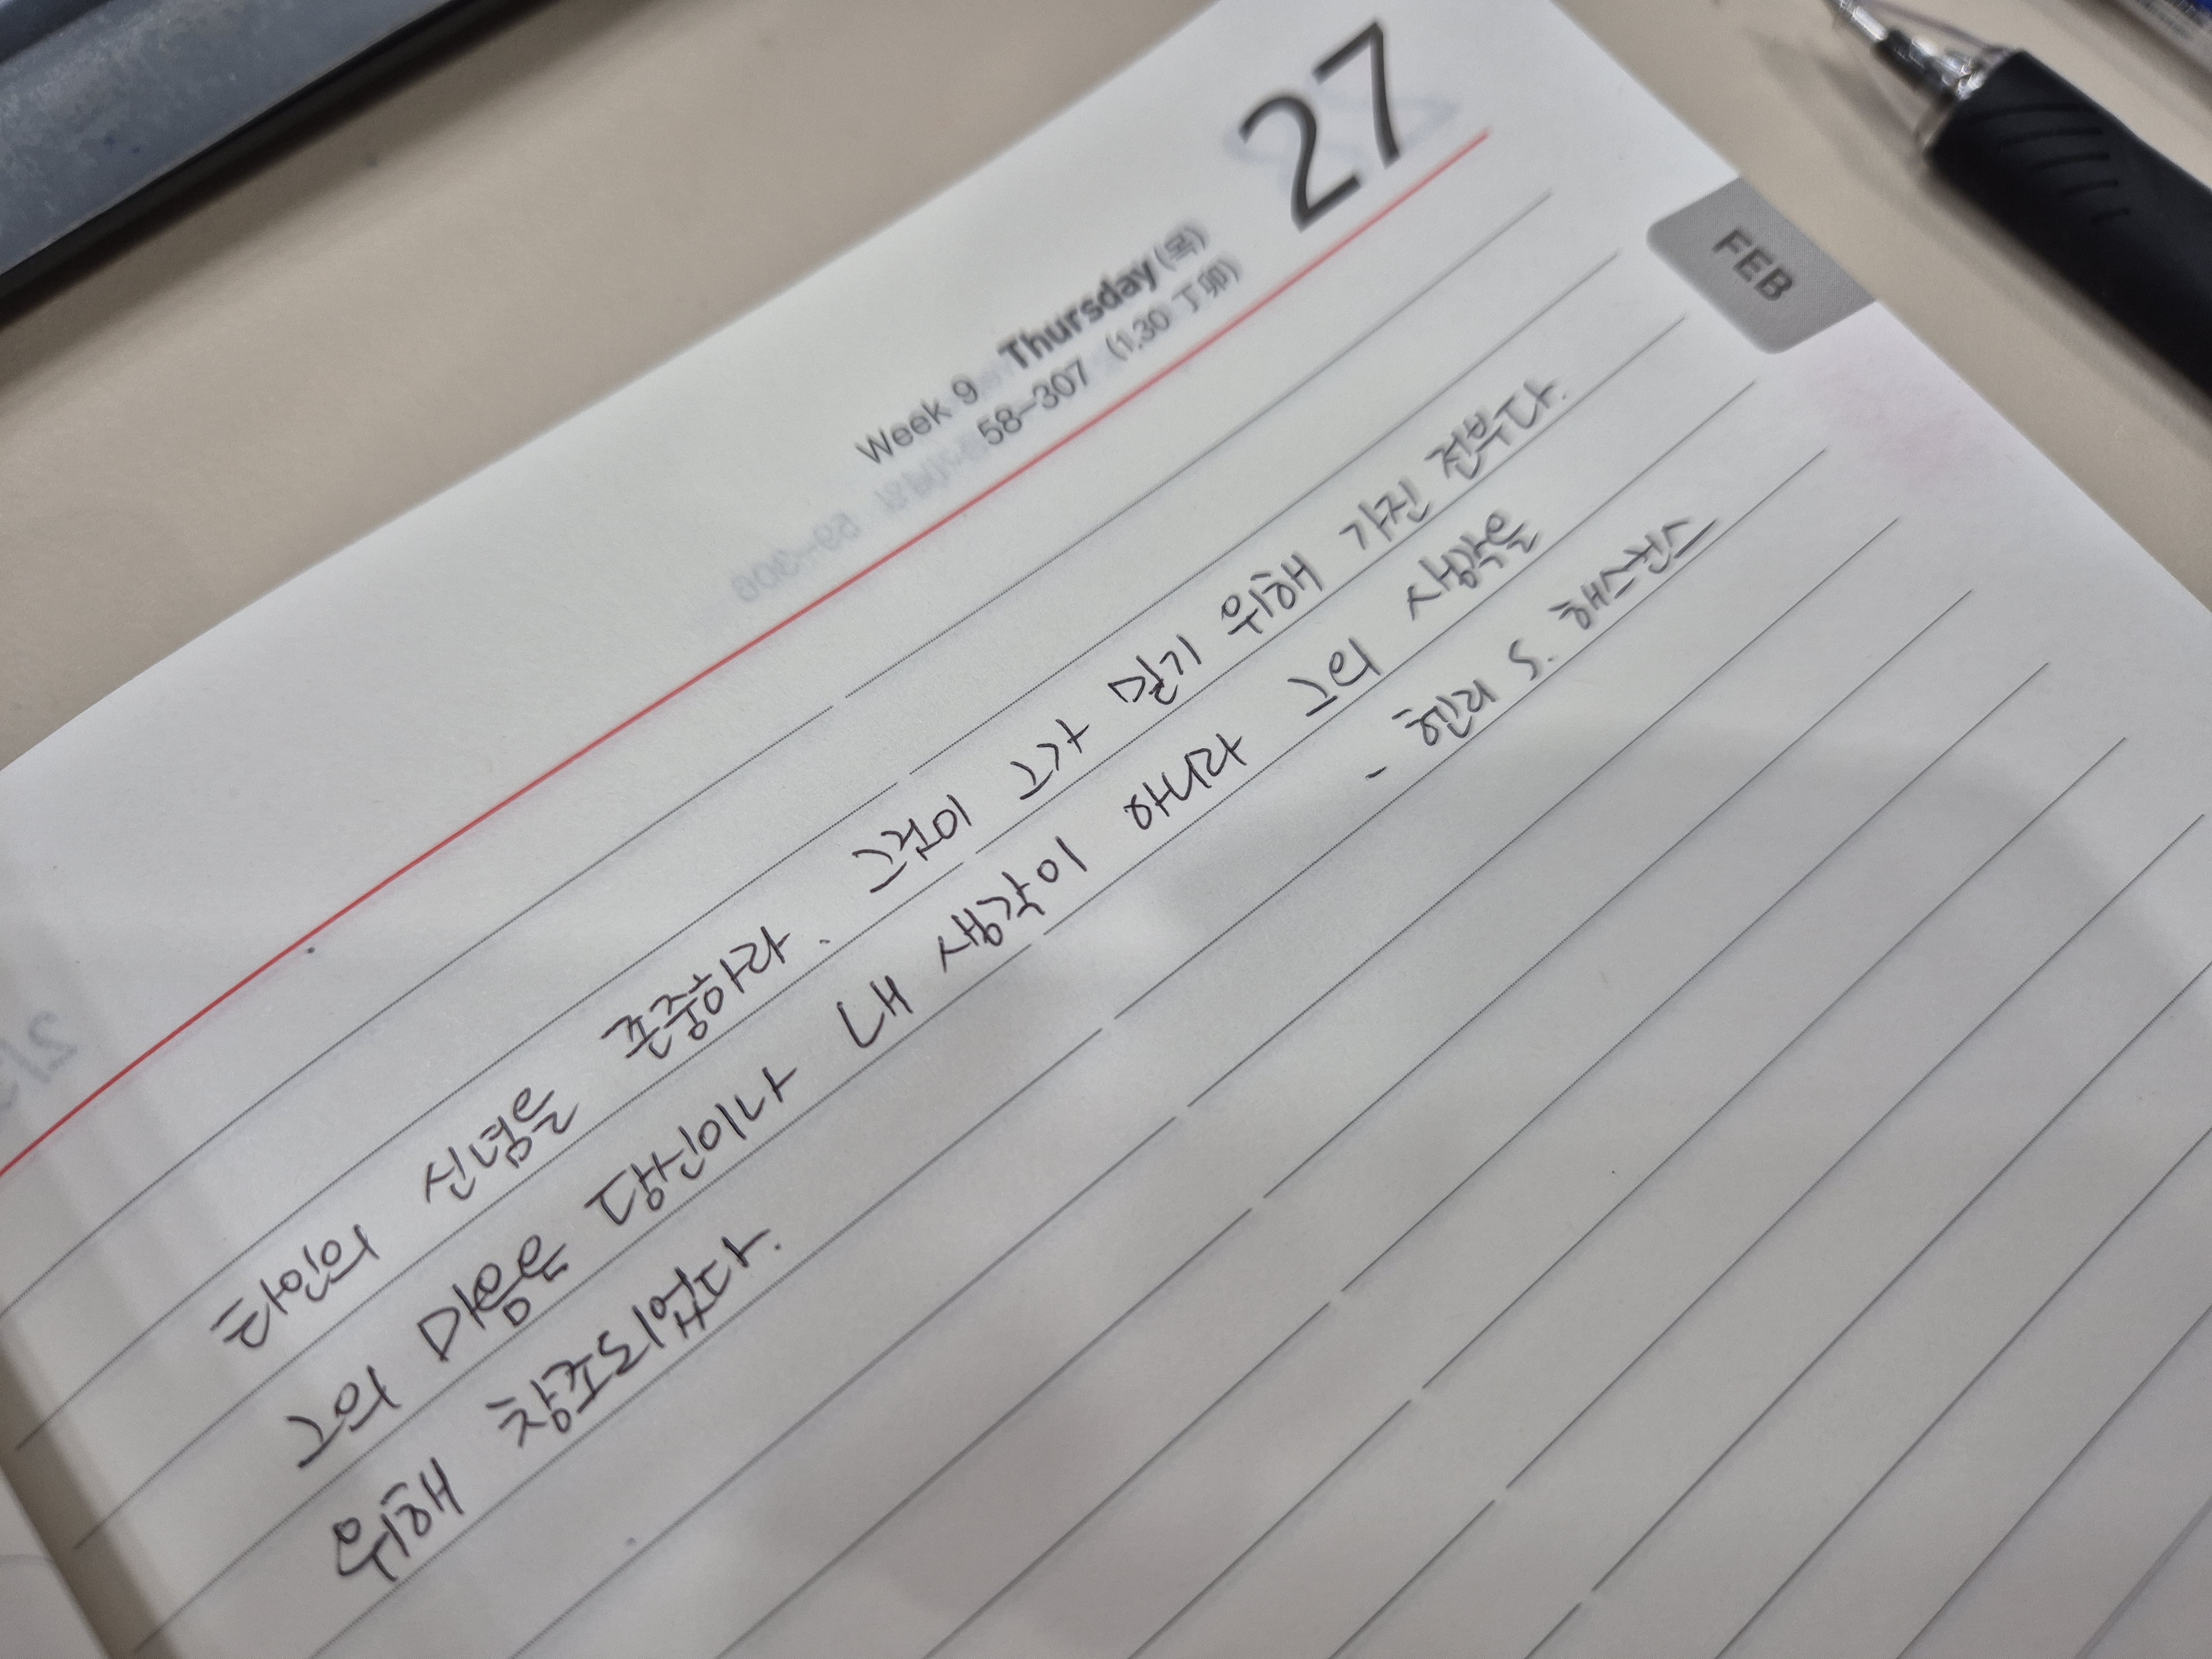 27
Week 9 Thursday(목)
58-307 (1.30 丁卯)
FEB
타인의 신념을 존중하라. 그것이 그가 믿기 위해 가진 전부다.
그의 마음은 당신이나 내 생각이 아니라 그의 생각을
위해 창조되었다.
- 헨리 S. 해스킨스